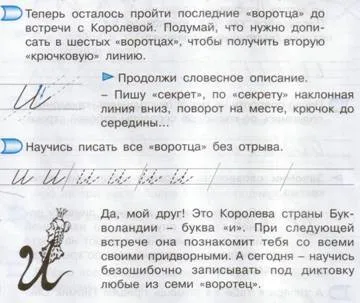 Теперь осталось пройти последние «воротца» до
встречи с Королевой. Подумай, что нужно допи-
сать в шестых «воротцах», чтобы получить вторую
«крючковую» линию.
и
Продолжи словесное описание.
– Пишу «секрет», по «секрету» наклонная
линия вниз, поворот на месте, крючок до
середины...
Научись писать все «воротца» без отрыва.
и и и и и и
Да, мой друг! Это Королева страны Бук-
воландии – буква «и». При следующей
встрече она познакомит тебя со всеми
своими придворными. А сегодня – научись
безошибочно записывать под диктовку
любые из семи «воротец».
И